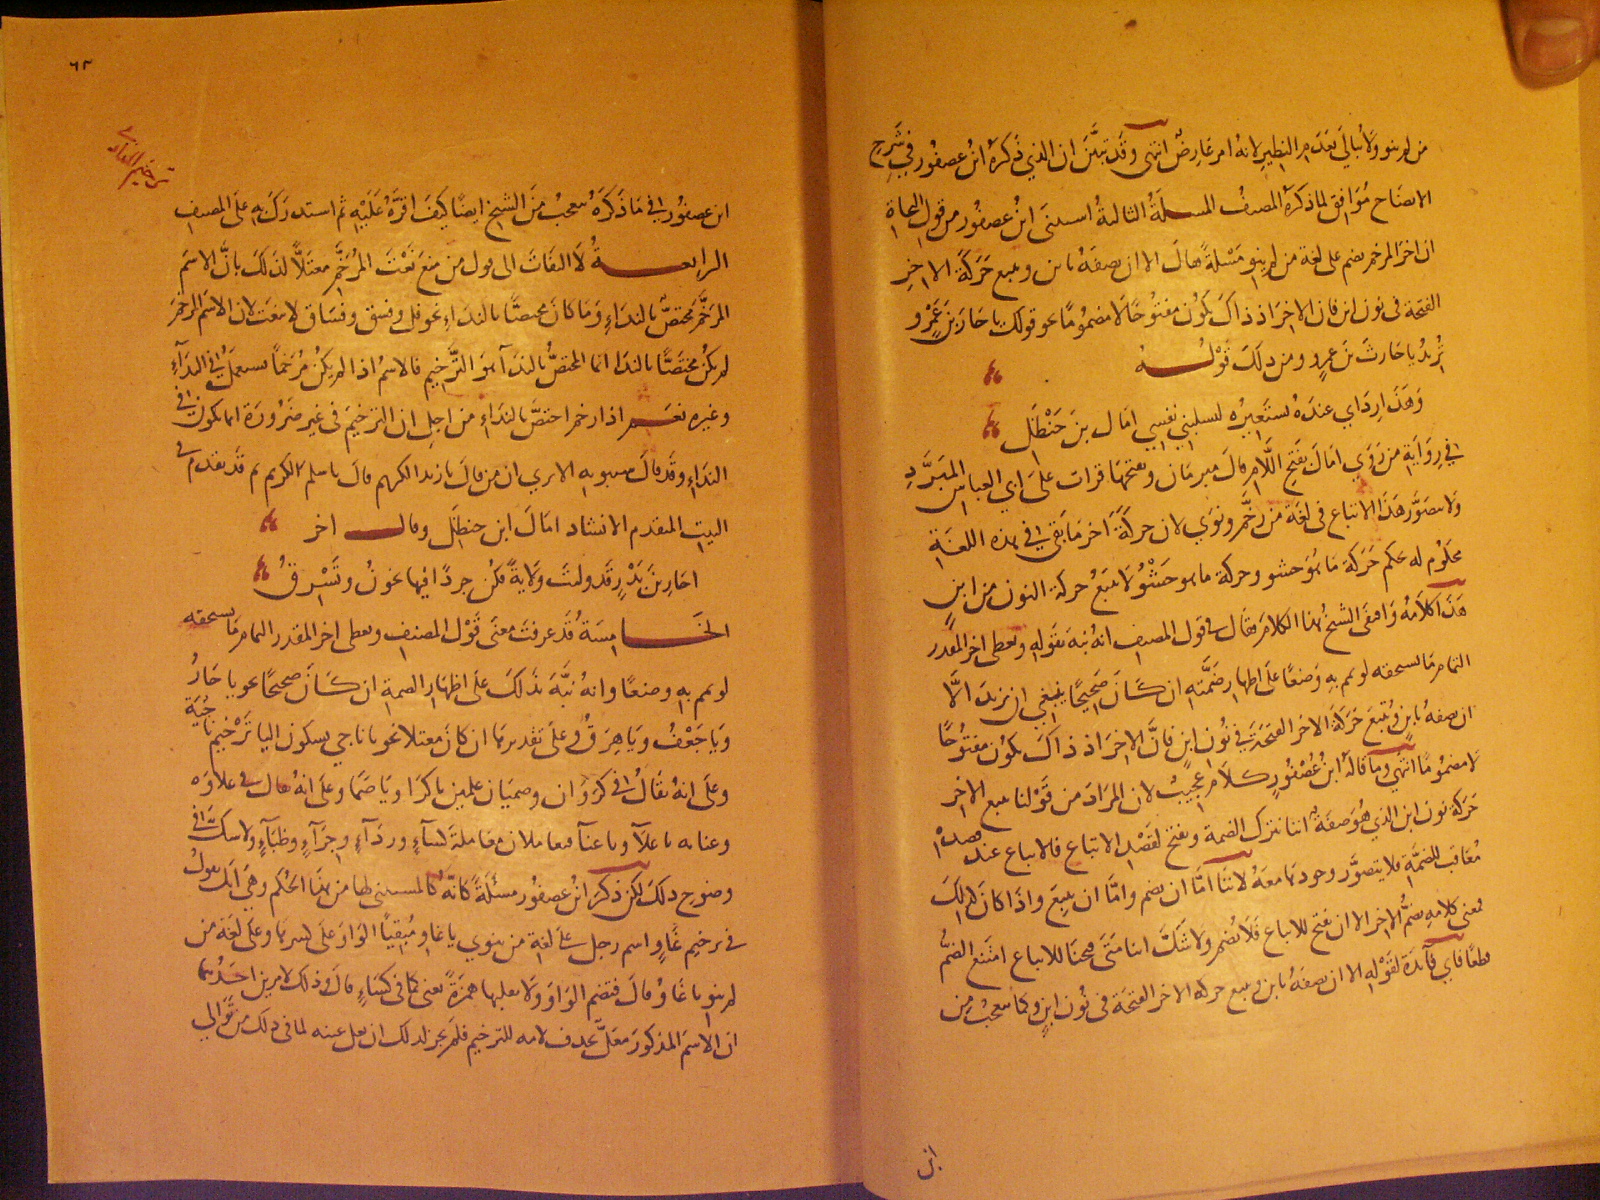 من لم ينو ولا نبالي بعدم النظير لانه امر عارض انتهى وقد تبين ان الذي ذكره ابن عصفور في شرح
الايضاح موافق لما ذكره المصنف المسئلة الثالثة استثنى ابن عصفور من قول النحاة
ان اخر المرخم يضم على لغة من لم ينو مسئلة فقال الا ان تصفه بابن وتتبع حركة الاخر
الفتحة في نون ابن فان الاخر اذ ذاك يكون مفتوحا لا مضموما نحو قولك يا حار بن عمرو
تريد يا حارث بن عمرو ومن ذلك قوله
وهذا رداي عنده يستعيره ليسلبني نفسي امال بن حنظل
في رواية من روى امال بفتح اللام قال مبرمان وبفتحها قرات على ابي العباس المبرد
ولا يتصور هذا الاتباع في لغة من رخم ونوى لان حركة اخر ما بقي في هذه اللغة
محكوم له بحكم حركة ما هو حشو وحركة ما هو حشو لا تتبع حركة النون من ابن
هذا كلامه وافقى الشيخ هذا الكلام فقال في قول المصنف انه نبه بقوله ويعطى اخر المقدر
التمام ما يستحقه لو تمم به وضعا على اظهار ضمته ان كان صحيحا ينبغي ان يزيد الا
ان تصفه بابن وتتبع حركة الاخر الفتحة في نون ابن فان الاخر اذ ذاك يكون مفتوحا
لا مضموما انتهى وما قاله ابن عصفور كلام عجيب لان المراد من قولنا تتبع الاخر
حركة نون ابن الذي هو صفة اننا نترك الضمة ونفتح لقصد الاتباع فالاتباع عند قصده
معاقب للضمة فلا يتصور وجودها معه لاننا اما ان نضم واما ان نتبع واذا كان كذلك
فمعنى كلامه يضم الاخر الا ان تفتح للاتباع فلا تضم ولا شك اننا متى فتحنا للاتباع امتنع الضم
قطعا فاي فائدة لقوله الا ان تصفه بابن وتتبع حركة الاخر الفتحة في نون ابن وكما تتعجب من
ابن
٦٢
ابن عصفور في ما ذكره تتعجب من الشيخ ايضا كيف اقره عليه ثم استدرك به على المصنف
الرابعة لا التفات الى قول من منع نعت المرخم معتلا لذلك بان الاسم
المرخم مختص بالنداء وما كان مختصا بالنداء نحو فل وفسق وفساق لا ينعت لان الاسم المرخم
لم يكن مختصا بالنداء انما المختص بالنداء هو الترخيم فالاسم اذا لم يكن مرخما يستعمل في النداء
وغيره نعم اذا رخم اختص بالنداء من اجل ان الترخيم في غير ضرورة انما يكون في
النداء وقد قال سيبويه الا ترى ان من قال يا زيد الكريم قال يا سلم الكريم ثم قد تقدم في
البيت المتقدم الانشاد امال ابن حنظل وقال اخر
احار بن بدر قد وليت ولاية فكن جرذا فيها تخون وتسرق
الخامسة قد عرفت معنى قول المصنف ويعطى اخر المقدر التمام ما يستحقه
لو تمم به وضعا وانه نبه بذلك على اظهار الضمة ان كان صحيحا نحو يا حار
ويا جعف ويا هرق وعلى تقديرها ان كان معتلا نحو يا ناجي بسكون اليا ترخيم ناجية
وعلى انه يقال في كروان وصميان علمين يا كرا ويا صما وعلى انه يقال في علاوه
وعنايه يا علاء ويا عناء فيعاملان معاملة كساء ورداء وجراء وظباء ولا شك في
وضوح ذلك لكن ذكر ابن عصفور مسئلة كانه كالمستثنى لها من هذا الحكم وهي انك تقول
في ترخيم غاو اسم رجل على لغة من ينوي يا غاو مبقيا الواو على كسرها وعلى لغة من
لم ينو يا غاو قال فتضم الواو ولا تعلها همزة يعني كما في كساء قال وذلك لامرين احدهما
ان الاسم المذكور معل بحذف لامه للترخيم فلم يجز لذلك ان تعل عينه لما في ذلك من توالي